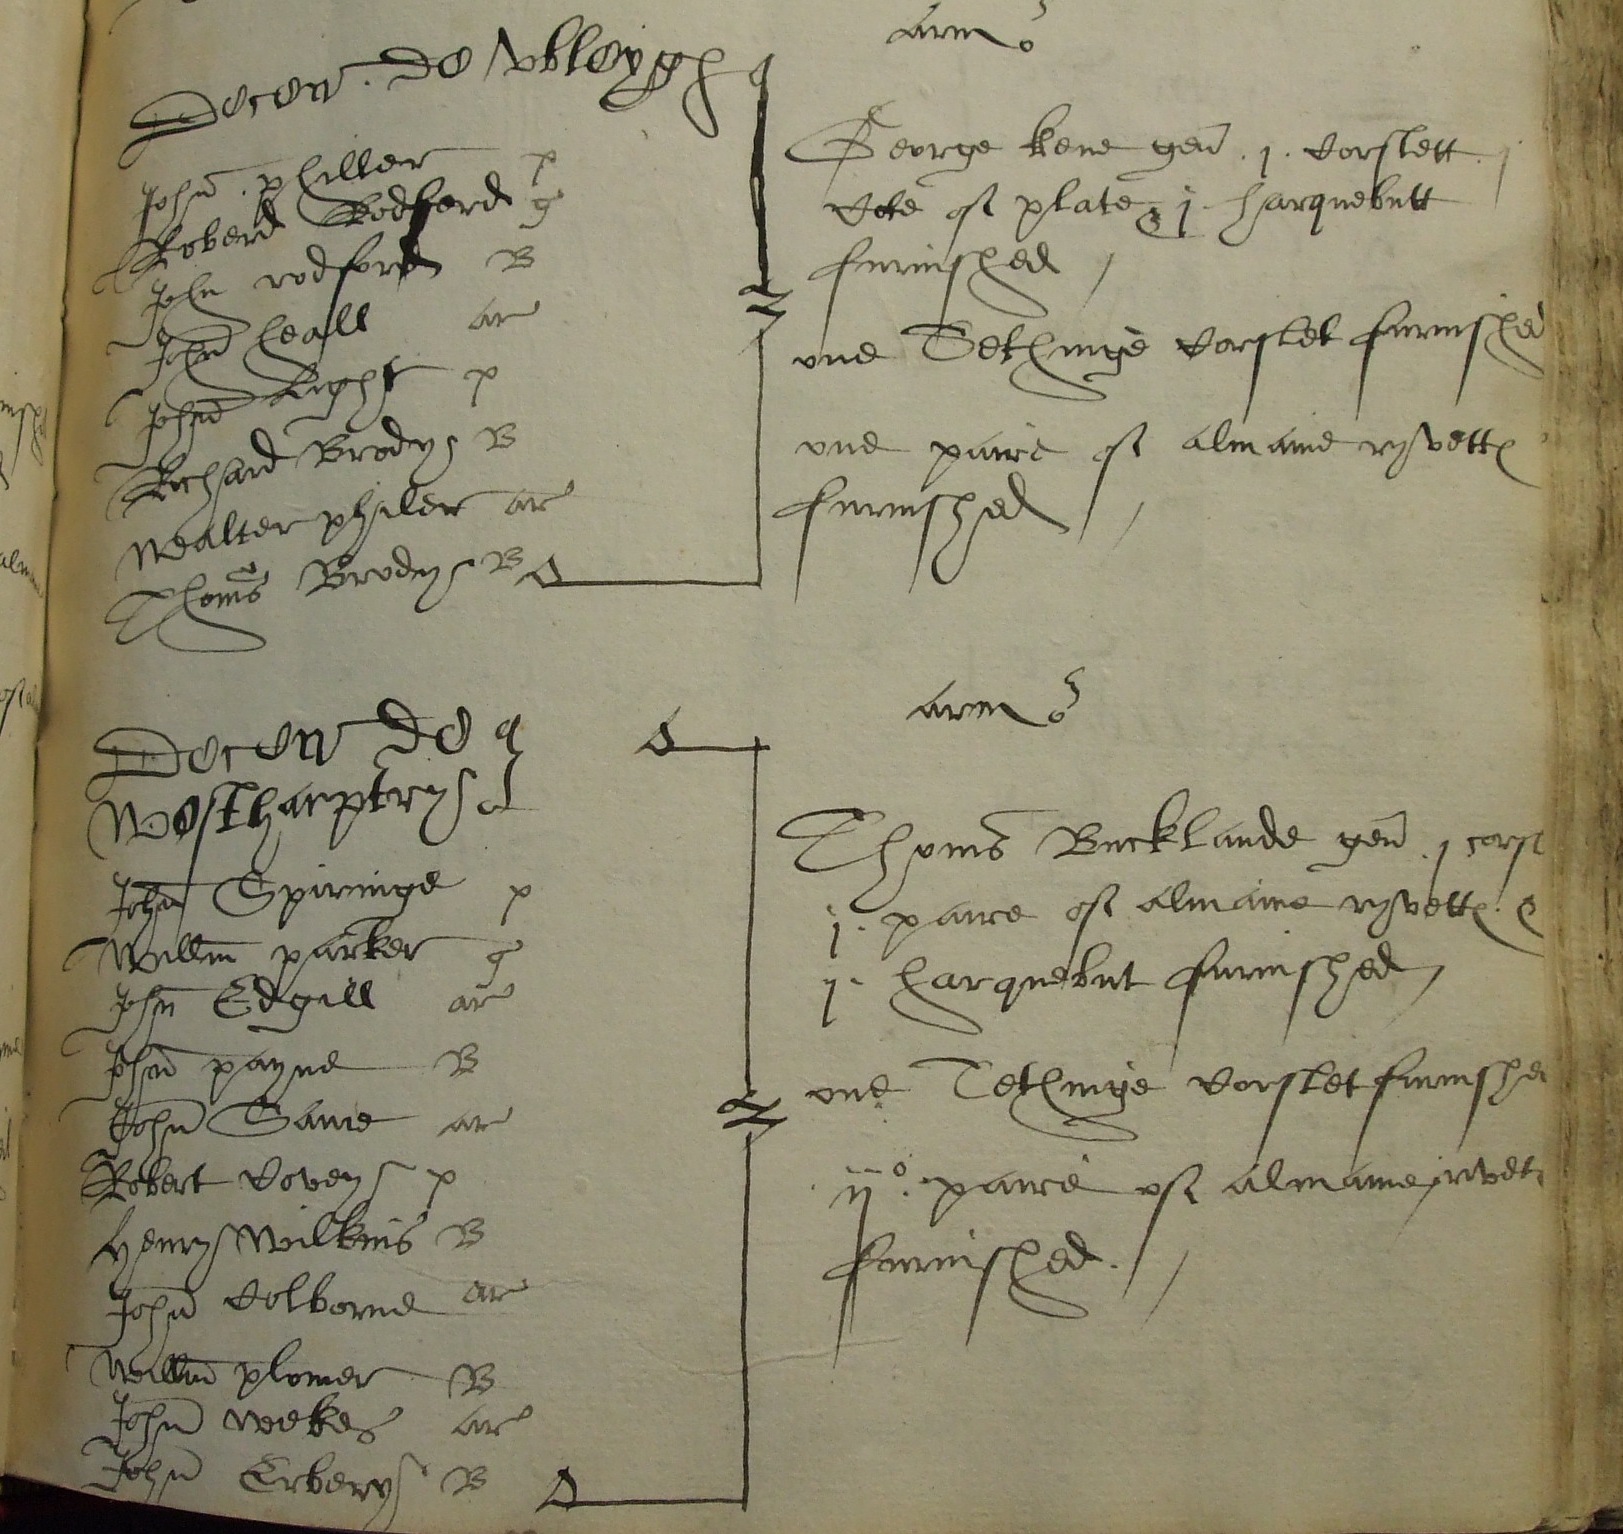 Decen de Ubleygh
John philler p
Roberd Rodford g
John rodford B
John heall ar
John Light p
Richard Brodys B
Wealter philer ar
Thoms Brodys B
arm
George kene gen . j . Corslett . j
Cote of plate & j . harquebutt
furnished /
one Tethinge Corslet furnished
one paire of almaine ryvetts
furnished /
Decen de
Westharptrys
John Spiringe p
Willm parker g
John Edgill ar
John payne B
John Same ar
Robert Coveys p
henry Wilkins B
John Colborne ar
Willm plomer B
John wekes ar
John Erberys B
arm
Thoms Bucklande gen . j corsl
j . paire of almaine ryvetts . &
j . harquebut furnished /
one Tethinge Corslet furnished
ijo . paire of almaine rivets
furnished . /